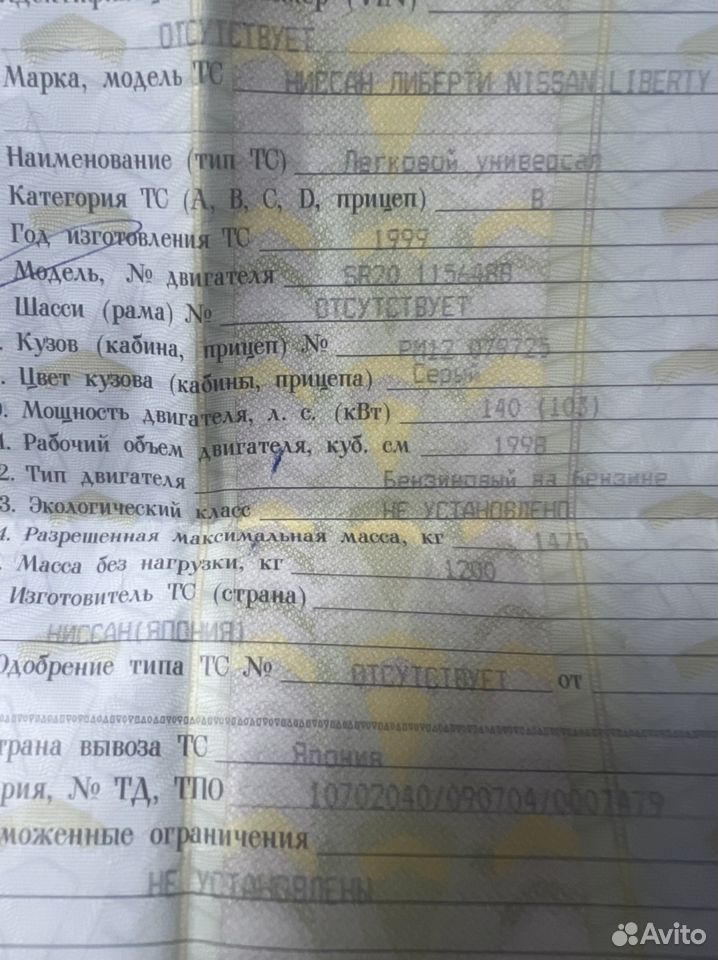 ОТСУТСТВУЕТ
Марка, модель ТС НИССАН ЛИБЕРТИ NISSAN LIBERTY
Наименование (тип ТС) Легковой универсал
Категория ТС (А, В, С, D, прицеп) В
Год изготовления ТС 1999
Модель, № двигателя SR20 115648В
Шасси (рама) № ОТСУТСТВУЕТ
. Кузов (кабина, прицеп) № РМ12 079725
. Цвет кузова (кабины, прицепа) Серый
0. Мощность двигателя, л. с. (кВт) 140 (103)
1. Рабочий объем двигателя, куб. см 1998
2. Тип двигателя Бензиновый на бензине
3. Экологический класс НЕ УСТАНОВЛЕНО
4. Разрешенная максимальная масса, кг 1475
. Масса без нагрузки, кг 1200
Изготовитель ТС (страна)
НИССАН(ЯПОНИЯ)
Одобрение типа ТС № ОТСУТСТВУЕТ от
трана вывоза ТС Япония
рия, № ТД, ТПО 10702040/090704/0007479
моженные ограничения
НЕ УСТАНОВЛЕНЫ
Avito